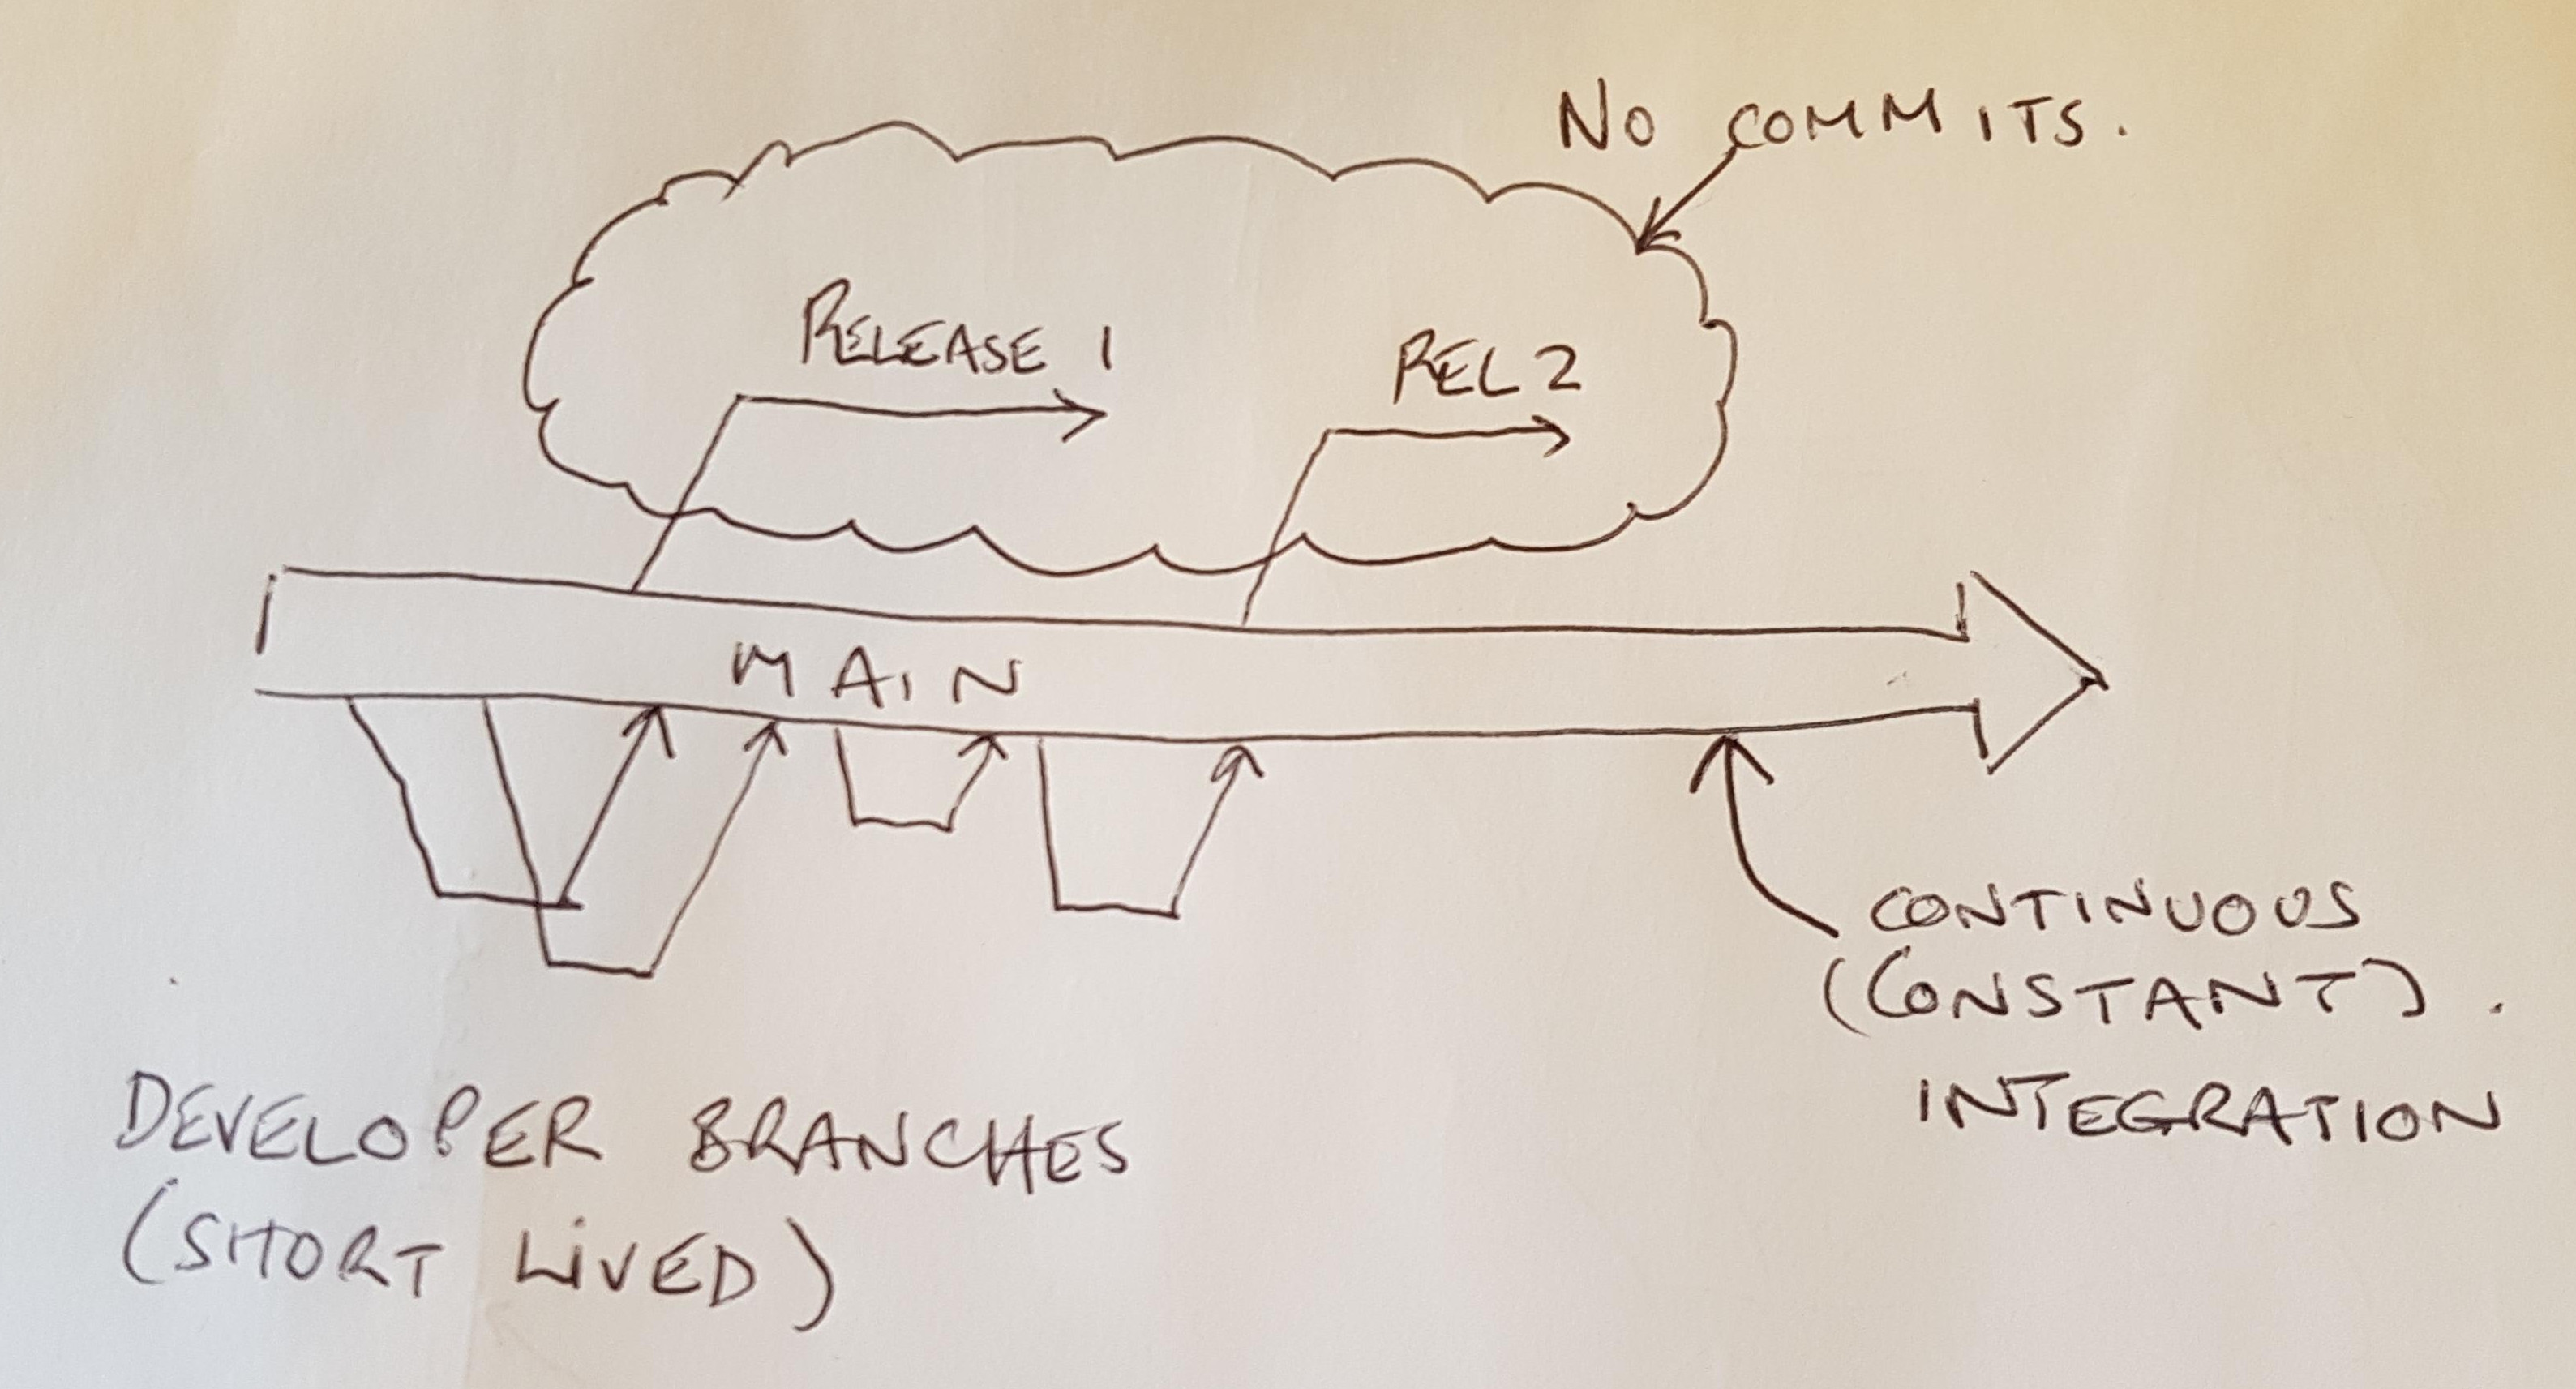 NO COMMITS.
RELEASE 1
REL 2
MAIN
CONTINUOUS
(CONSTANT).
INTEGRATION
DEVELOPER BRANCHES
(SHORT LIVED)